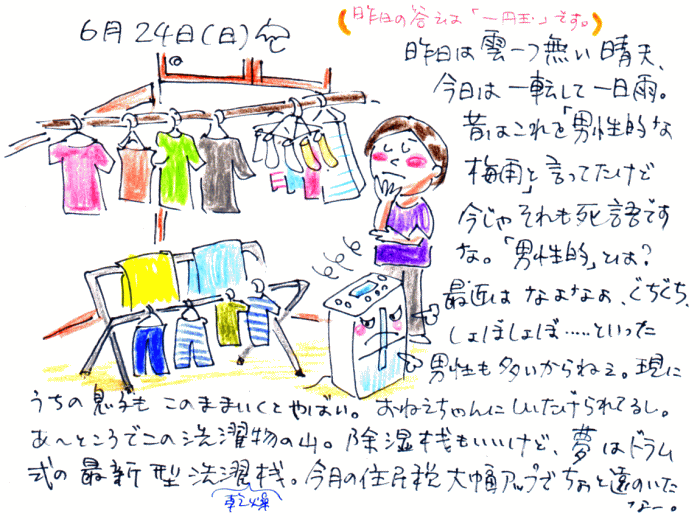 6月24日(日)
(昨日の答えは「一円玉」です。)
昨日は雲一つ無い晴天、
今日は一転して一日雨。
昔はこれを「男性的な
梅雨」と言ってたけど
今じゃそれも死語です
な。「男性的」とは?
最近はなよなよ、ぐちぐち、
しょぼしょぼ……といった
男性も多いからねぇ。現に
うちの息子もこのままいくとやばい。おねえちゃんにしいたげられてるし。
あ〜ところでこの洗濯物の山。除湿機もいいけど、夢はドラム
式の最新型洗濯機。今月の住民税大幅アップでちょっと遠のいた
乾燥
なー。